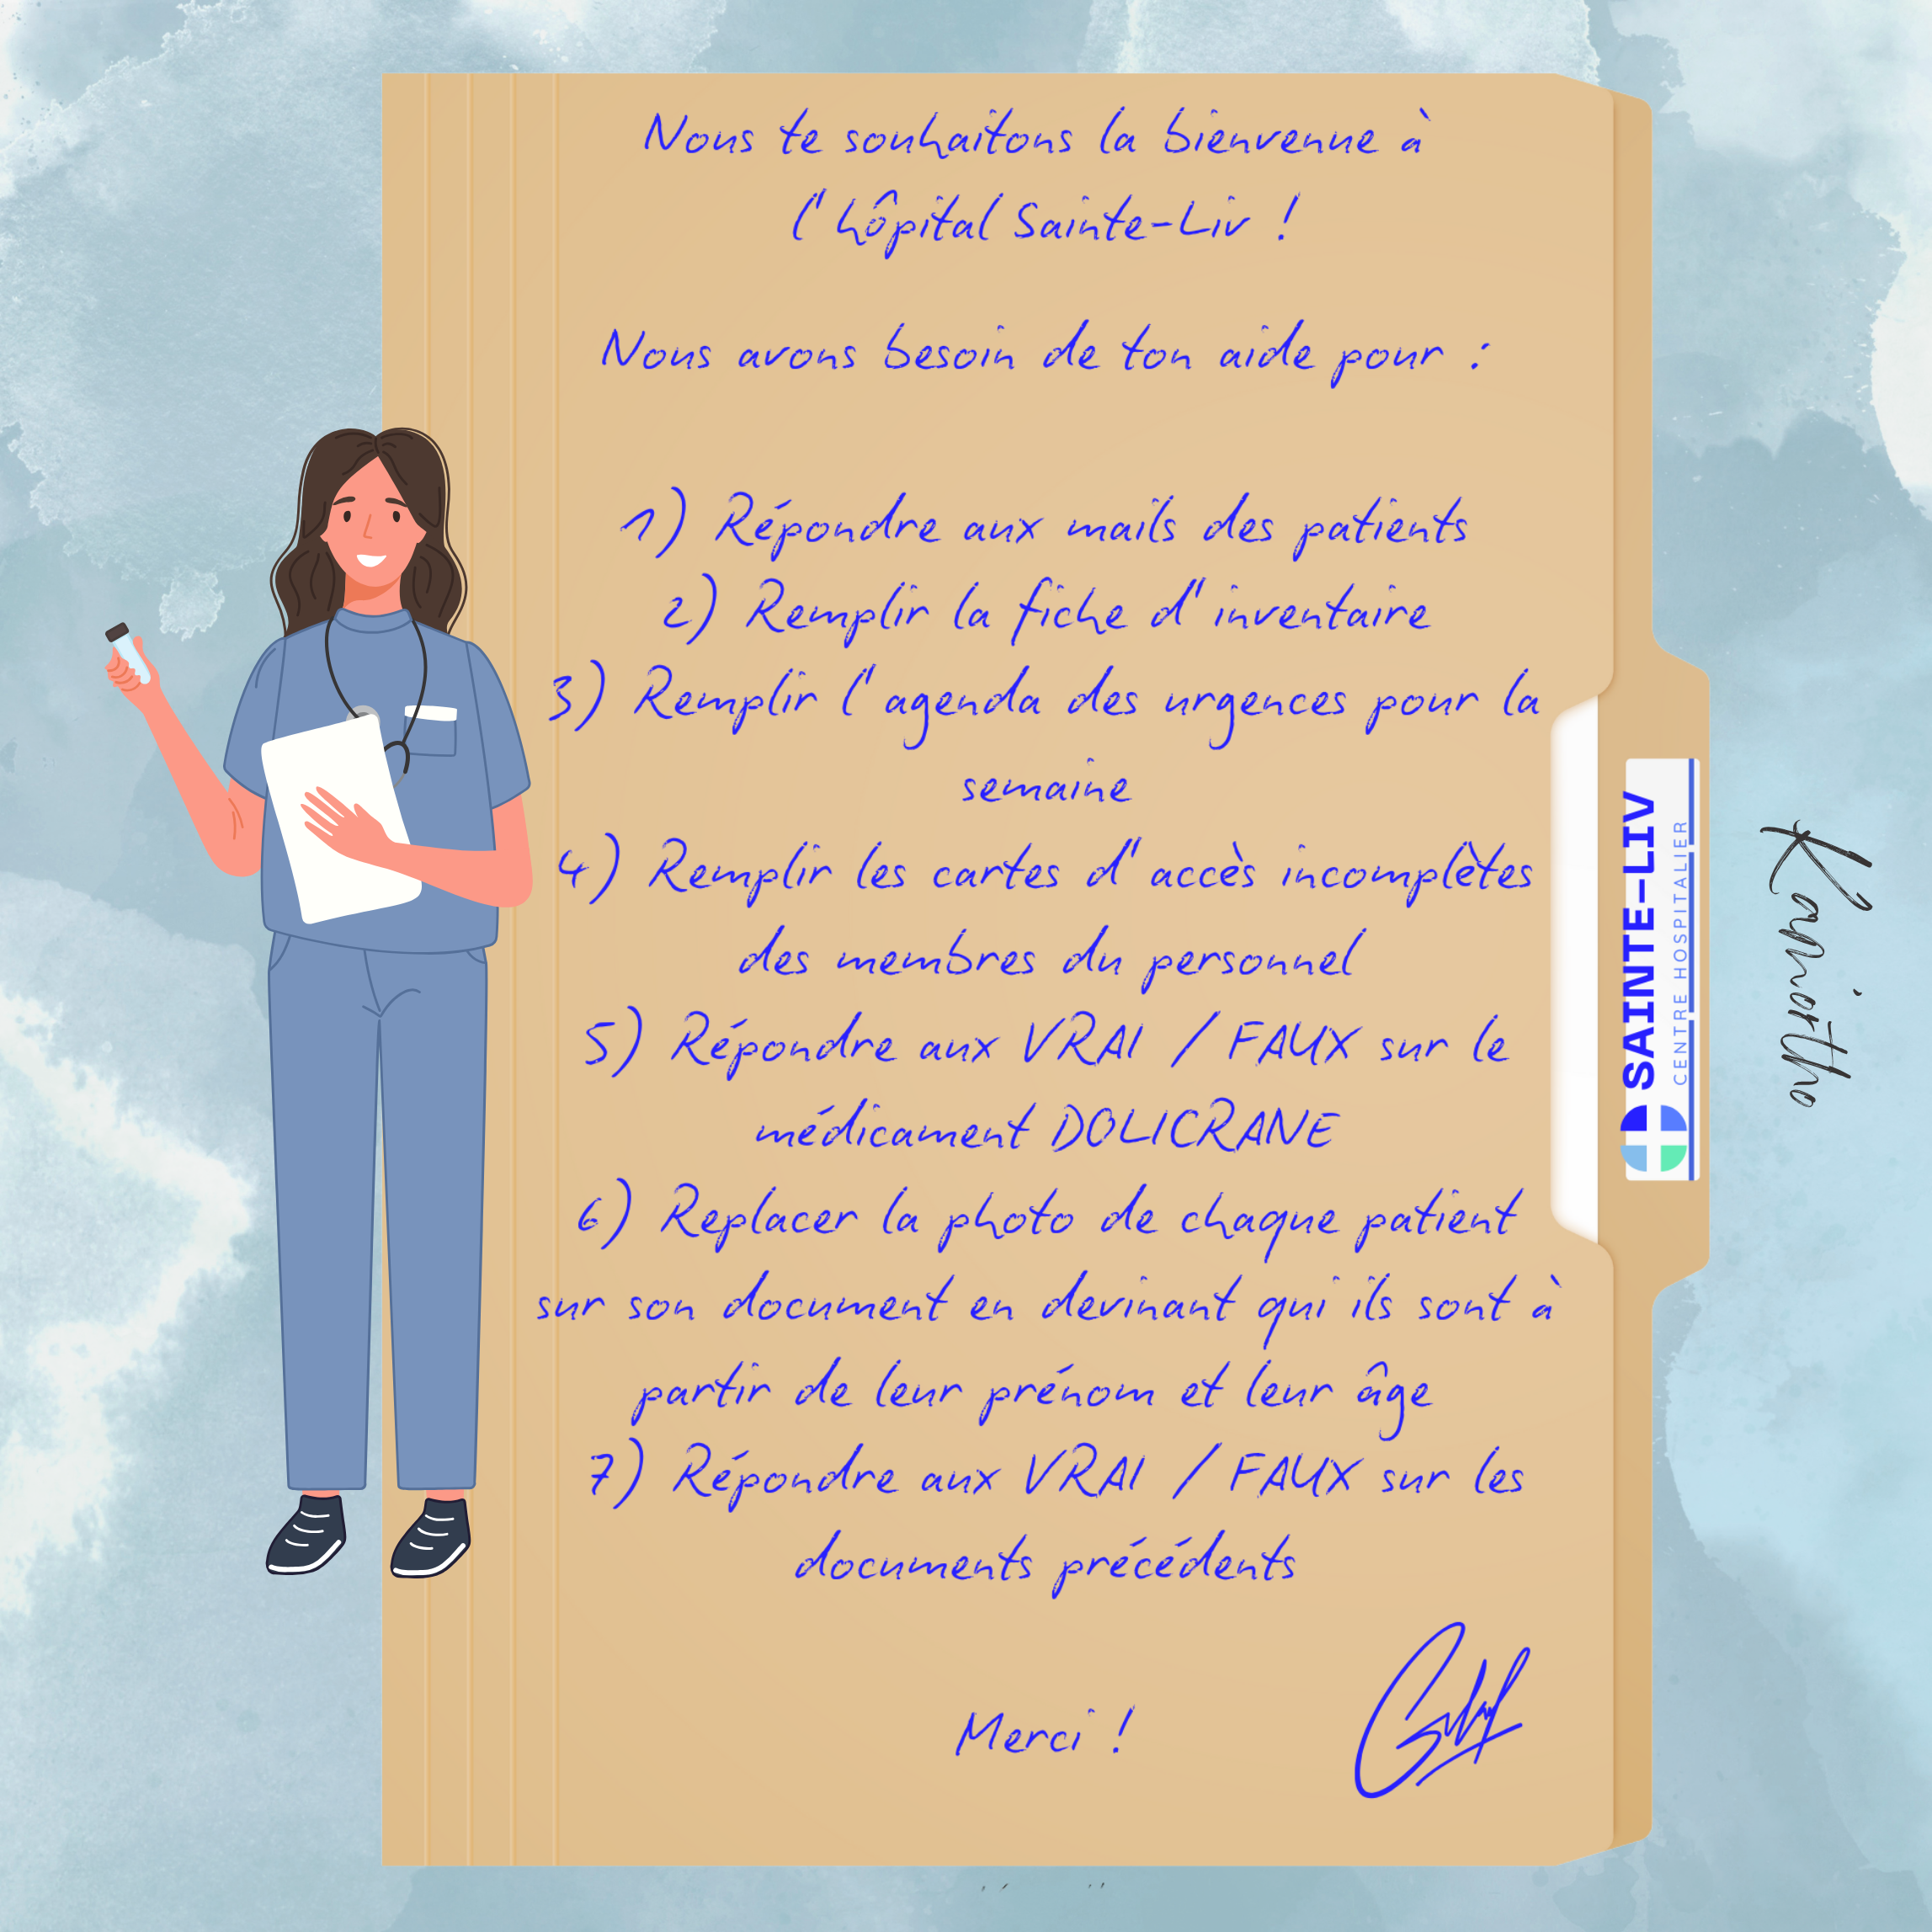 Nous te souhaitons la bienvenue à
l'hôpital Sainte-Liv !
Nous avons besoin de ton aide pour :
1) Répondre aux mails des patients
2) Remplir la fiche d'inventaire
3) Remplir l'agenda des urgences pour la
semaine
4) Remplir les cartes d'accès incomplètes
des membres du personnel
5) Répondre aux VRAI / FAUX sur le
médicament DOLICRANE
6) Replacer la photo de chaque patient
sur son document en devinant qui ils sont à
partir de leur prénom et leur âge
7) Répondre aux VRAI / FAUX sur les
documents précédents
Merci !
SAINTE-LIV
CENTRE HOSPITALIER
Kamiortho